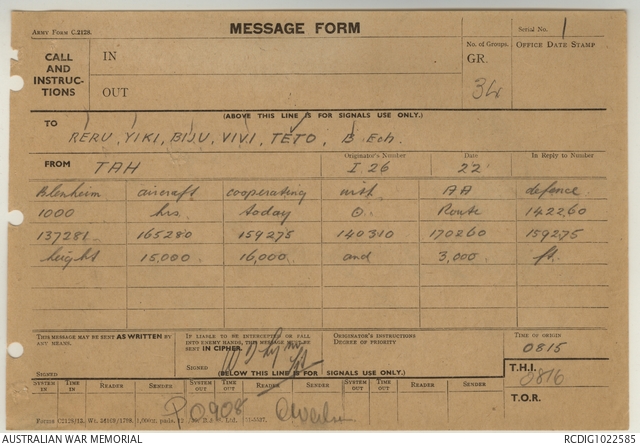 ARMY FORM C.2128.
MESSAGE FORM
Serial No. 1
CALL AND INSTRUC-TIONS
IN
OUT
No. of Groups.
GR.
34
OFFICE DATE STAMP
(ABOVE THIS LINE IS FOR SIGNALS USE ONLY.)
TO
RERU, YIKI, BIJU, VIVI, TETO, B Ech.
FROM TAH
Originator's Number
I.26
Date
22
In Reply to Number
Blenheim aircraft cooperating with AA defence
1000 hrs today O. Route 142260
137281 165280 159275 140310 170260 159275
height 15,000 16,000 and 3,000 ft.
THIS MESSAGE MAY BE SENT AS WRITTEN BY ANY MEANS.
SIGNED
IF LIABLE TO BE INTERCEPTED OR FALL INTO ENEMY HANDS, THIS MESSAGE MUST BE SENT IN CIPHER.
SIGNED
ORIGINATOR'S INSTRUCTIONS
DEGREE OF PRIORITY
TIME OF ORIGIN
0815
(BELOW THIS LINE IS FOR SIGNALS USE ONLY.)
T.H.I.
0816
T.O.R.
SYSTEM IN
TIME IN
READER
SENDER
SYSTEM OUT
TIME OUT
READER
SENDER
SYSTEM OUT
TIME OUT
READER
SENDER
P 0908
AUSTRALIAN WAR MEMORIAL
RCDIG1022585